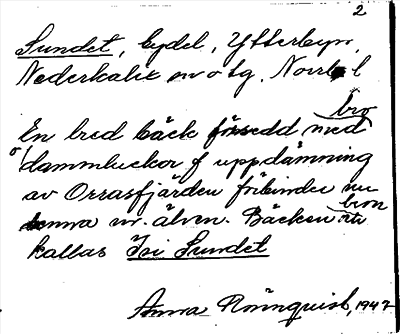 2
Sundet, bydel, Ytterbyn,
Nederkalix sn o tg, Norrb l
bro
En bred bäck försedd med
o dammluckor f uppdämning
av Orrasfjärden förbinder nu
denna m. älven. Bäcken
bron
kallas Isi Sundet
Anna Rönnquist, 1947